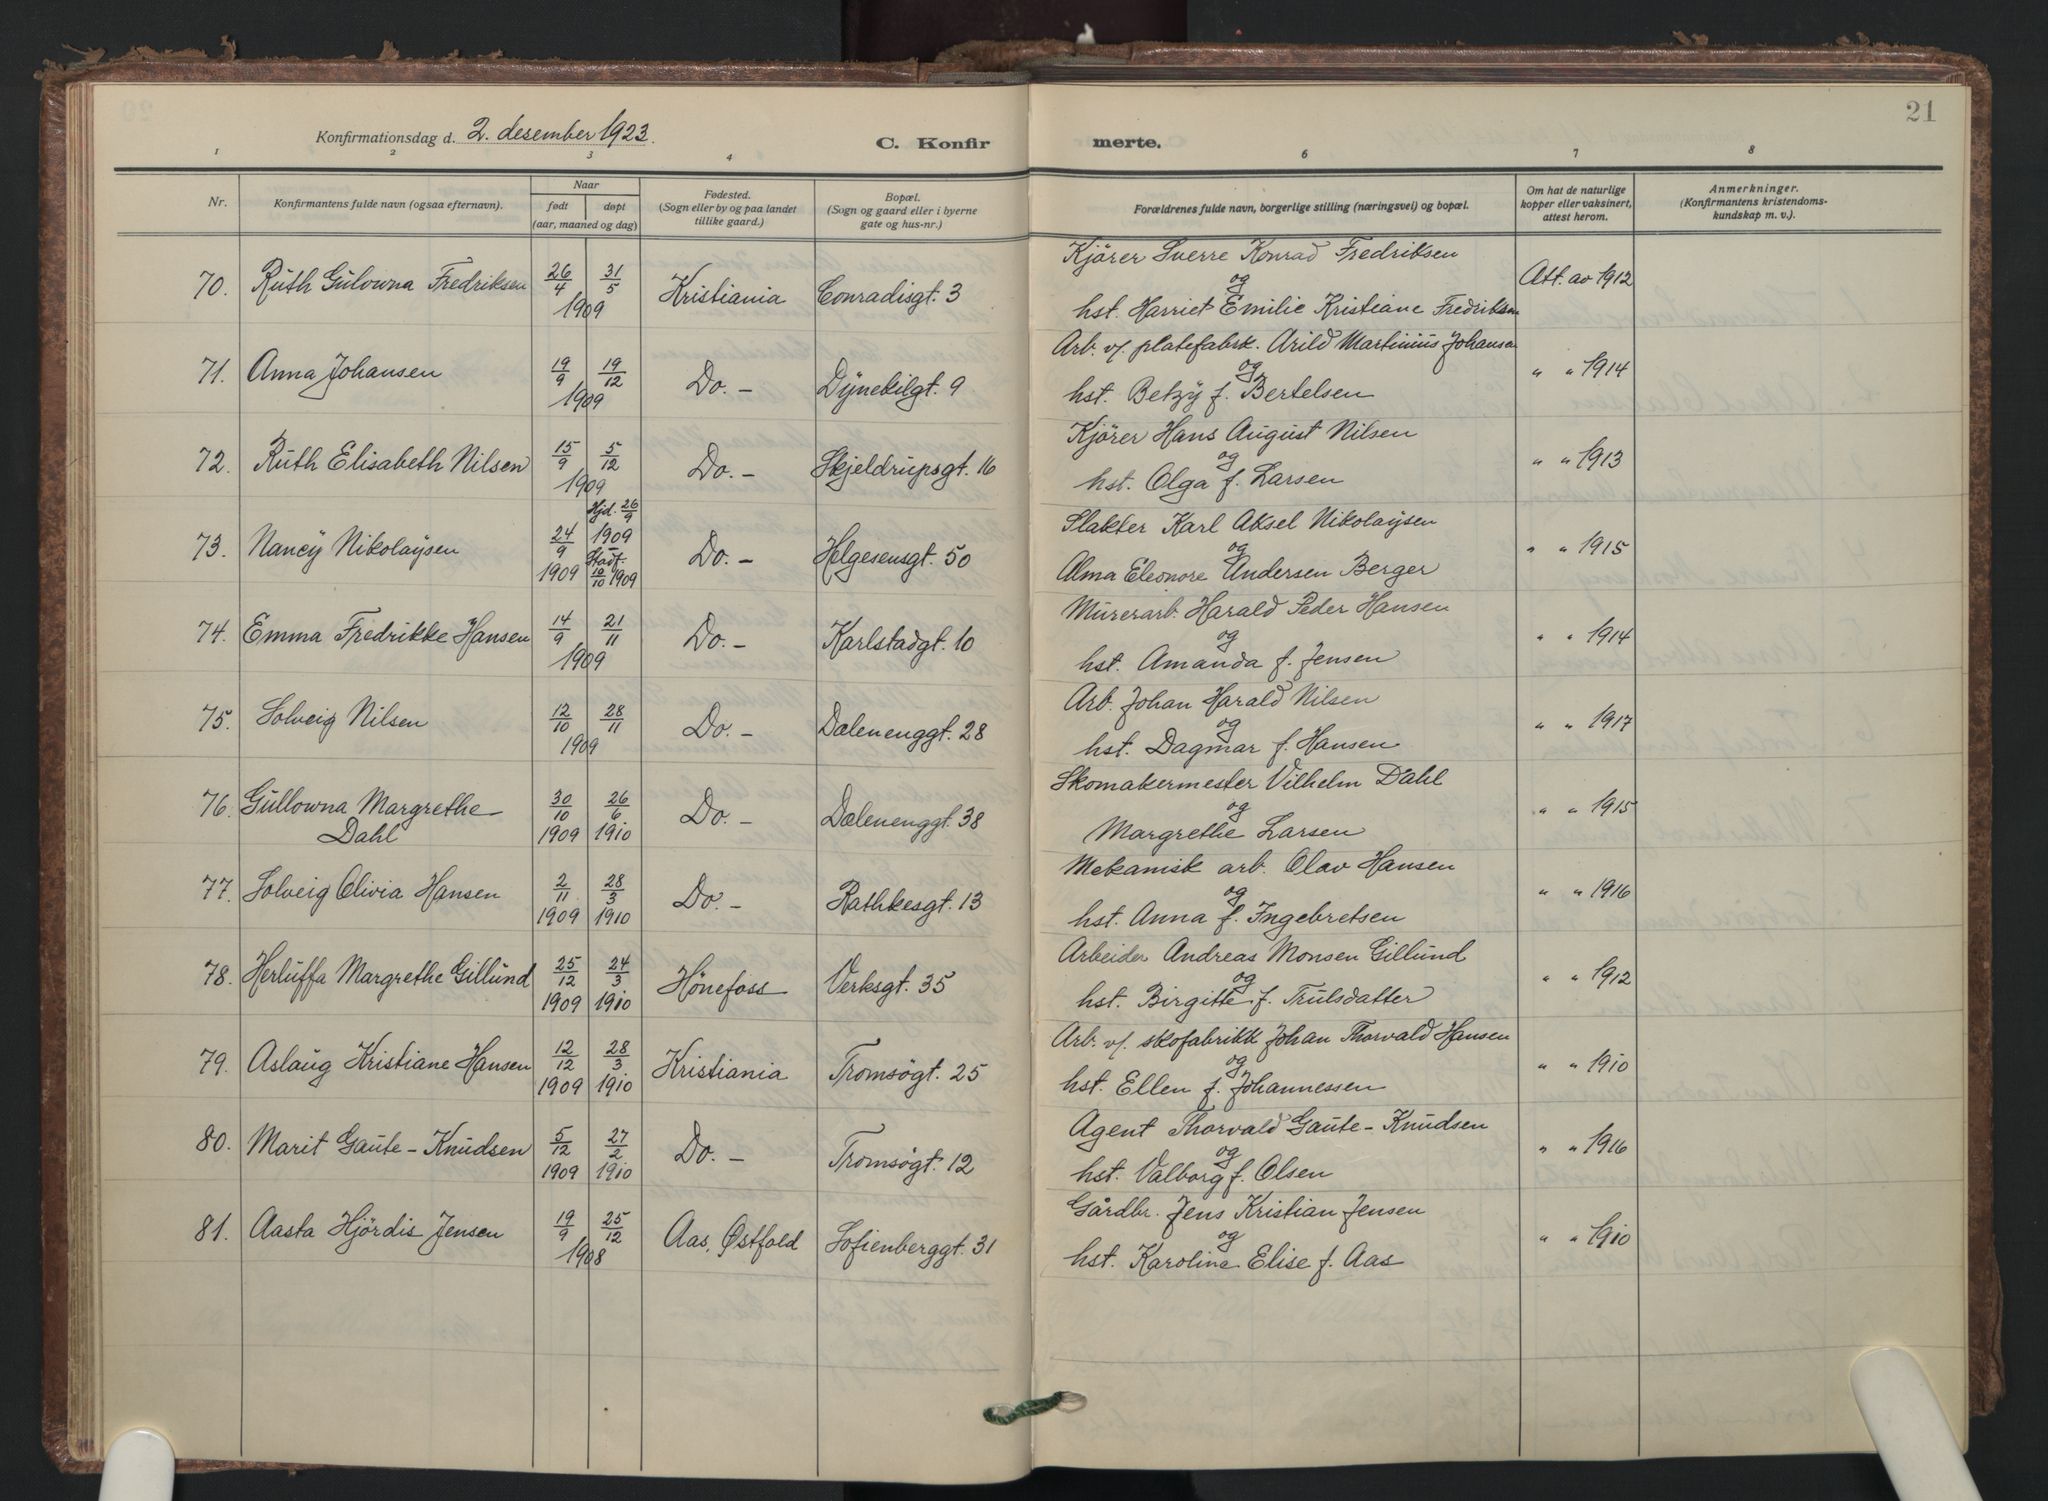 21
Konfirmationsdag d. 2. desember 1923.
C. Konfirmerte.
1 2 3 4 6 7 8
Nr.
Konfirmantens fulde navn (ogsaa efternavn).
Naar
født døpt
(aar, maaned og dag)
Fødested.
(Sogn eller by og paa landet
tillike gaard.)
Bopæl.
(Sogn og gaard eller i byerne
gate og hus-nr.)
Forældrenes fulde navn, borgerlige stilling (næringsvei) og bopæl.
Om hat de naturlige
kopper eller vaksinert,
attest herom.
Anmerkninger.
(Konfirmantens kristendoms-
kundskap m. v.).
70. Ruth Gulowna Fredriksen 26/4 31/5 1909 Kristiania Conradisgt. 3
Kjörer Sverre Konrad Fredriksen
og
hst. Harriet Emilie Kristiane Fredriksen
Att. av 1912
71. Anna Johansen 19/9 19/12 1909 Do. - Dynekilgt. 9
Arb. v/ platefabrk. Arild Martinius Johansen
og
hst. Betzy f. Bertelsen
" " 1914
72. Ruth Elisabeth Nilsen 15/9 5/12 1909 Do. - Skjeldrupsgt. 16
Kjörer Hans August Nilsen
og
hst. Olga f. Larsen
" " 1913
73. Nancy Nikolaysen 24/9 1909 Hjd. 26/9 1909 - Stadf. 10/10 1909 Do. - Helgesensgt. 50
Slakter Karl Aksel Nikolaysen
og
Alma Eleonore Andersen Berger
" " 1915
74. Emma Fredrikke Hansen 14/9 21/11 1909 Do. - Karlstadgt. 10
Murerarb. Harald Peder Hansen
og
hst. Amanda f. Jensen
" " 1914
75. Solveig Nilsen 12/10 28/11 1909 Do. - Dælenenggt. 28
Arb. Johan Harald Nilsen
og
hst. Dagmar f. Hansen
" " 1917
76. Gullowna Margrethe
Dahl 30/10 1909 26/6 1910 Do. - Dælenenggt. 38
Skomakermester Vilhelm Dahl
og
Margrethe Larsen
" " 1915
77. Solveig Olivia Hansen 2/11 1909 28/3 1910 Do. - Rathkesgt. 13
Mekanisk arb. Olav Hansen
og
hst. Anna f. Ingebretsen
" " 1916
78. Herluffa Margrethe Gillund 25/12 1909 24/3 1910 Hönefoss Verksgt. 35
Arbeider Andreas Monsen Gillund
og
hst. Birgitte f. Trulsdatter
" " 1912
79. Aslaug Kristiane Hansen 12/12 1909 28/3 1910 Kristiania Tromsøgt. 25
Arb. v/ skofabrikk Johan Thorvald Hansen
og
hst. Ellen f. Johannessen
" " 1910
80. Marit Gaute-Knudsen 5/12 1909 27/2 1910 Do. - Tromsøgt. 12
Agent Thorvald Gaute-Knudsen
og
hst. Valborg f. Olsen
" " 1916
81. Aasta Hjördis Jensen 19/9 25/12 1908 Aas, Østfold Sofienberggt. 31
Gårdbr. Jens Kristian Jensen
og
hst. Karoline Elise f. Aas
" " 1910